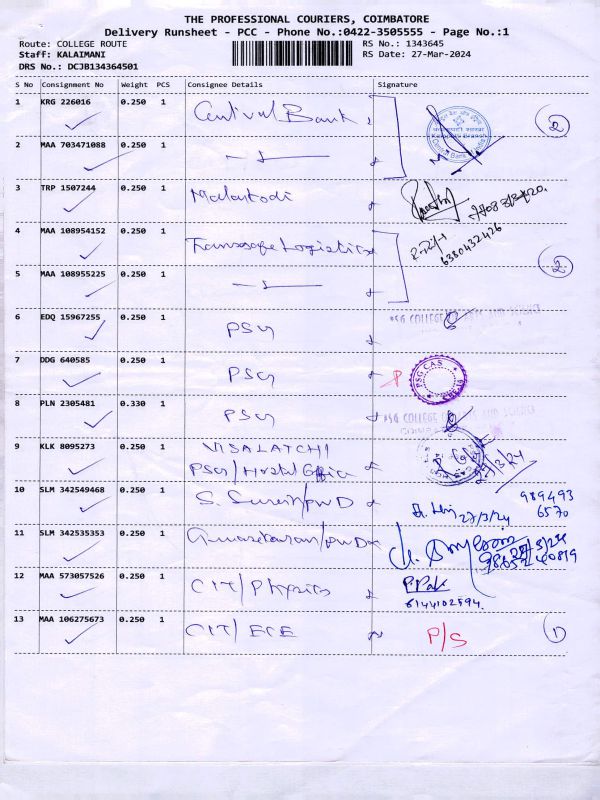 THE PROFESSIONAL COURIERS, COIMBATORE
Delivery Runsheet - PCC - Phone No.:0422-3505555 - Page No.:1
Route: COLLEGE ROUTE
RS No.: 1343645
Staff: KALAIMANI
RS Date: 27-Mar-2024
DRS No.: DCJB134364501
S No Consignment No Weight PCS Consignee Details Signature
1 KRG 226016 0.250 1 Central Bank 2
2 MAA 703471088 0.250 1
3 TRP 1507244 0.250 1 Malarkodi
4 MAA 108954152 0.250 1 Transsafe Logistics
6380432426
5 MAA 108955225 0.250 1 2
6 EDQ 15967255 0.250 1 PSG
7 DDG 640585 0.250 1 PSG PSG CAS
8 PLN 2305481 0.330 1 PSG PSG COLLEGE
9 KLK 8095273 0.250 1 VISALATCHI
PSG/Hostel Office
10 SLM 342549468 0.250 1 S. Suresh/PWD 27/3/24 989493
6570
11 SLM 342535353 0.250 1
12 MAA 573057526 0.250 1 CIT/Physics
6144102594
13 MAA 106275673 0.250 1 CIT/ECE P/S 1